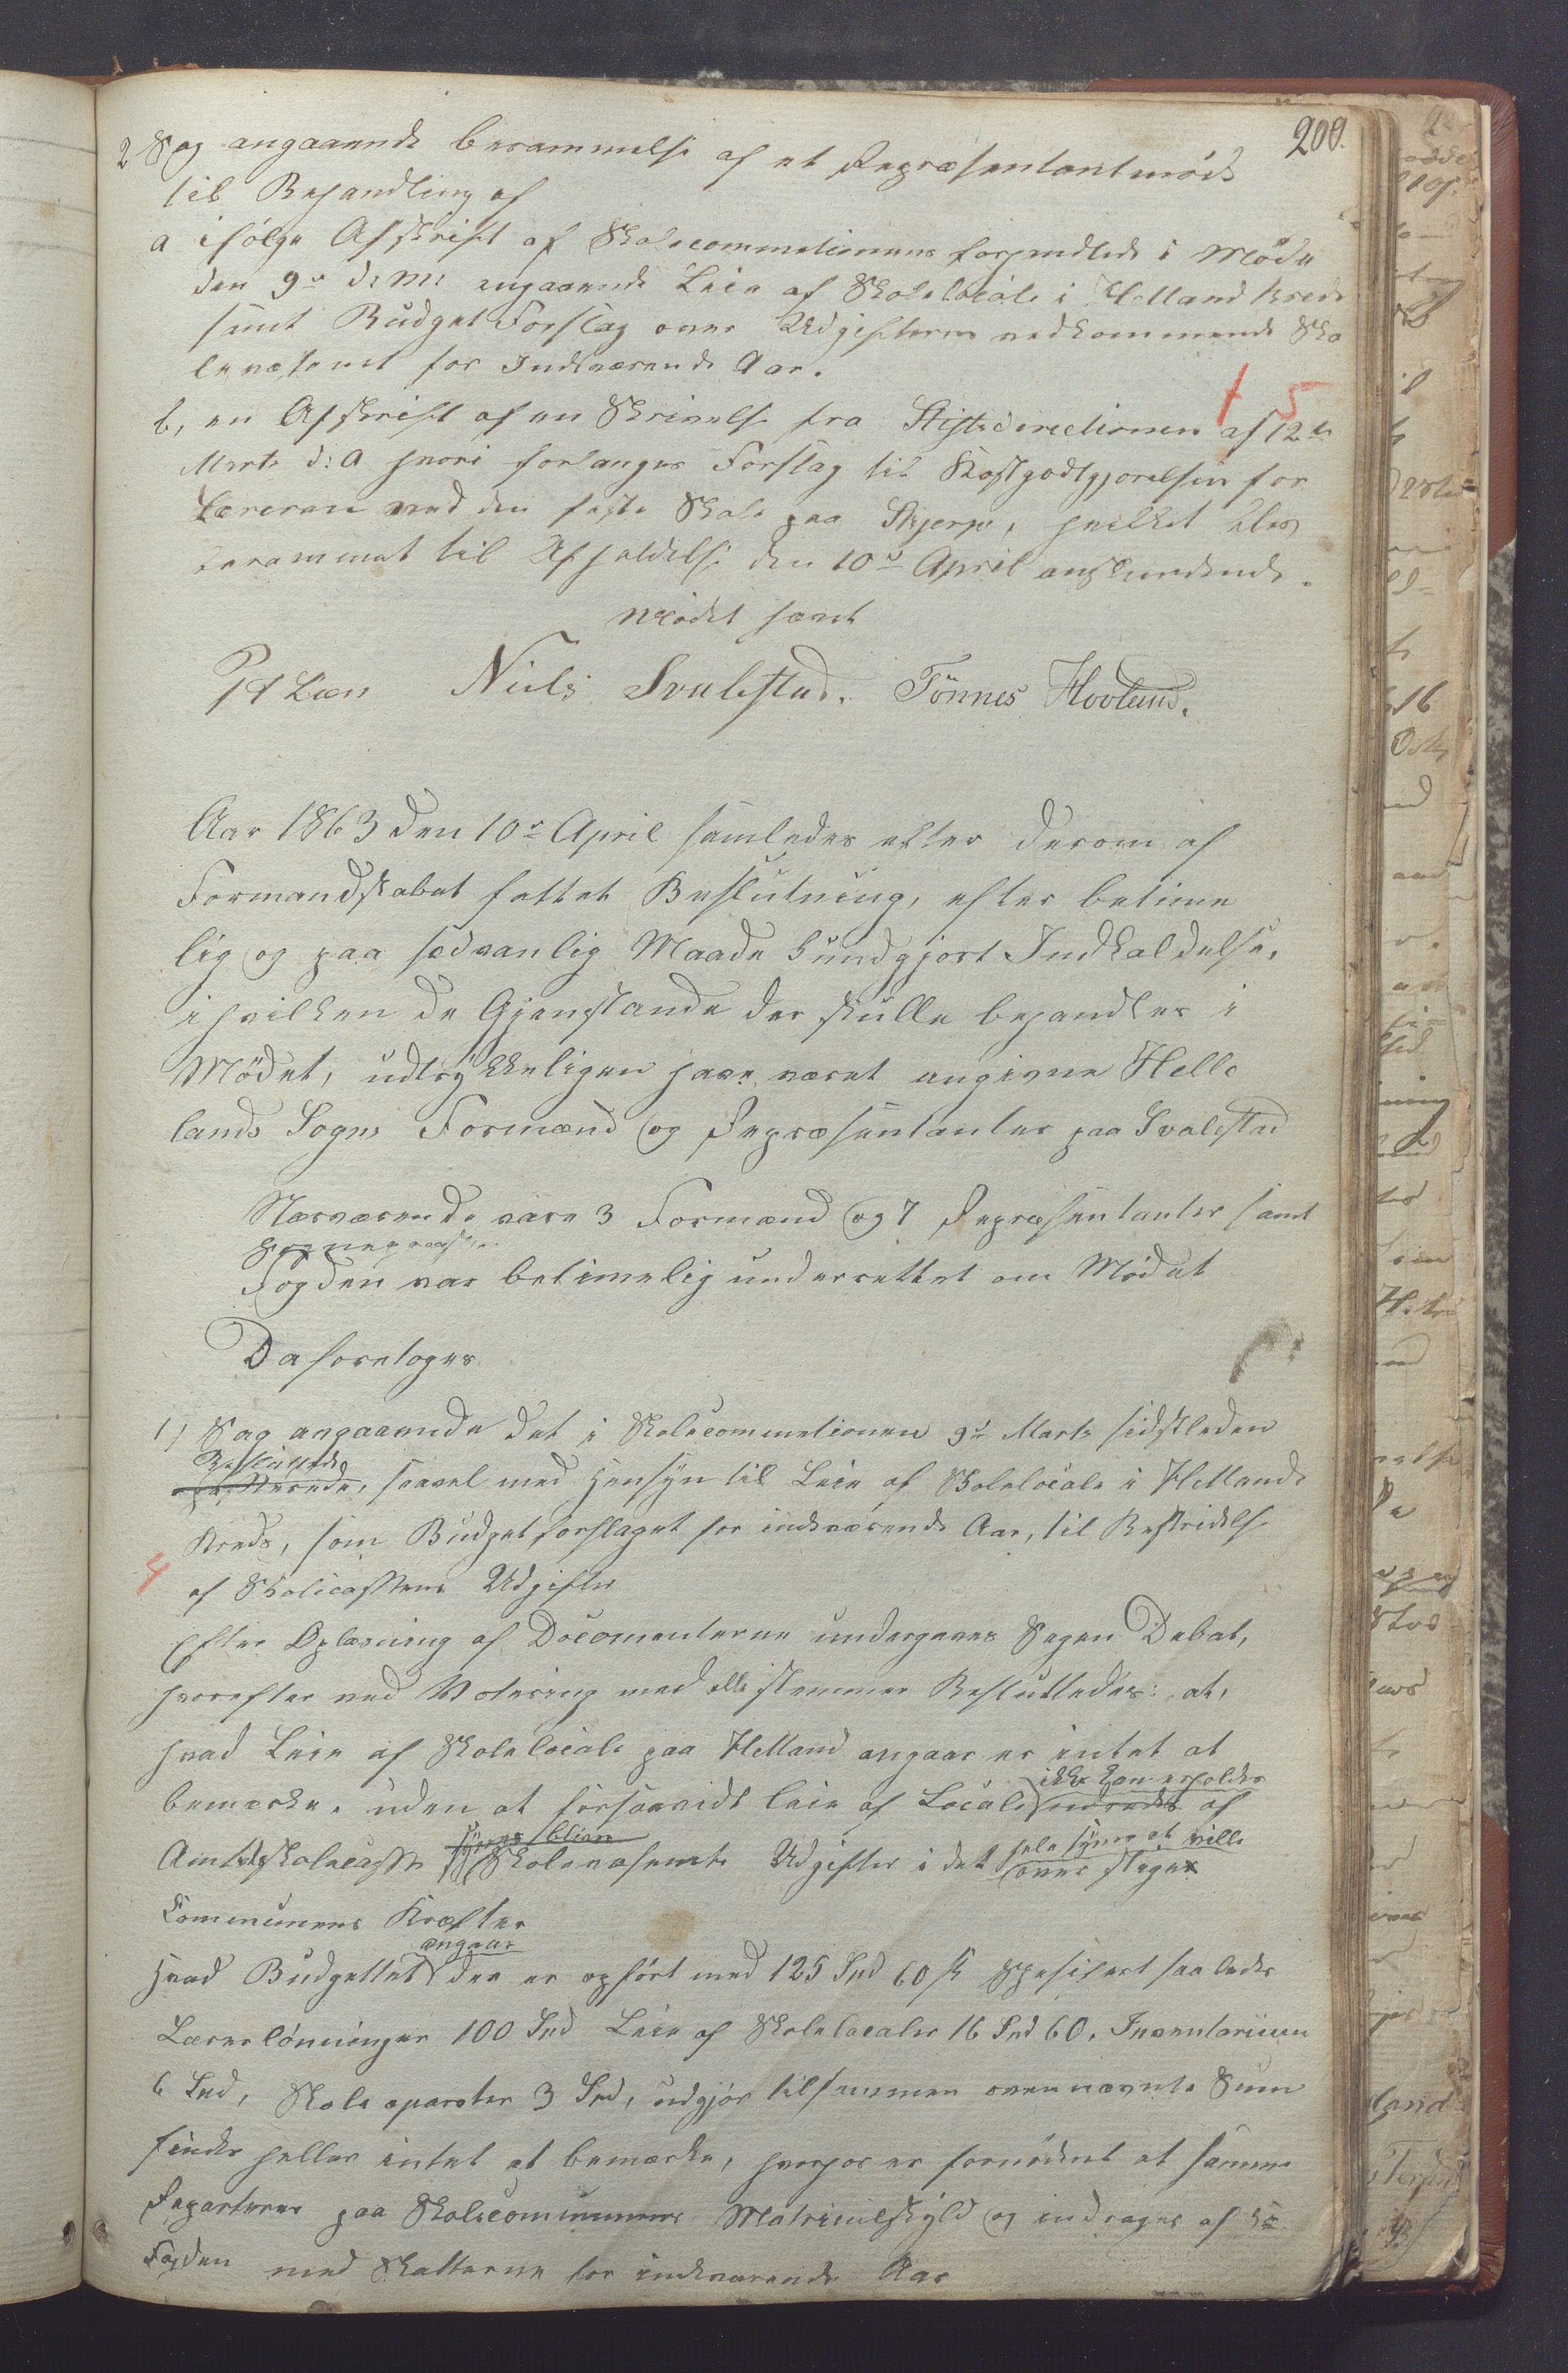 200.
2 Sag angaaende berammelse af et Repræsentantmöde
til Behandling af
a ifölge Afskrift af Skolecommitionens forhandlede i Möde
den 9de d: M: angaaende Leie af Skolelocale i Helland Kreds
samt Budget Forslag over Udgifterne vedkommende Sko
levæsenet for Indeværende Aar.
b, en Afskrift af en Skrivelse fra Stiftsdirectionen af 12te
Marts d: A hvori forlanges Forslag til Kostgodtgjørelsen for
Læreren ved den faste Skole paa Skjerpe, hvilket blev
berammet til Afholdelse den 10de April anstundende.
Mödet hævet
Niels Svalestad. Tönnes Hovland.
Aar 1863 den 10de April samledes efter derom af
Formandskabet fattet Beslutning, efter betime
lig og paa sedvanlig Maade kundgjort Indkaldelse,
i hvilken de Gjenstande der skulle behandles i
Mödet, udtrykkeligen have været angivne Helle
lands Sogns Formænd og Repræsentanter paa Svalestad
Nærværende vare 3 Formænd og 7 Repræsentanter samt
Sognepræsten
Fogden var betimelig underrettet om Mödet
Da foretoges
1) Sag angaaende det i Skolecommitionen 9de Marts sidstleden
Besluttede
passerede, saavel med Hensyn til Leie af Skolelocale i Hellands
Kreds, som Budgetforslaget for indeværende Aar, til Bestridelse
af Skolecassens Udgifter
Efter Oplæsning af Documenterne undergaves Sagen Debat,
hvorefter ved Votering med alle stemmer Besluttedes: at,
hvad Leie af Skolelocale paa Helland angaar er intet at
bemærke, uden at forsaavidt leie af Locale ikke kan erholdes af
Amtsskolecassen synes blive Skolevæsenets Udgifter i det hele synes at ville overstige
Communens Kræfter
Hvad Budgettet angaar der er opfört med 125 Spd 60 s spesifisert saaledes
Lærerlönninger 100 Spd Leie af Skolelocaler 16 Spd 60, Inventarium
6 Spd, Skole aparater 3 Spd, udgjör tilsammen ovennævnte Sum
findes heller intet at bemærke, hvorfor er fornödent at samme
Reparteres paa Skolecommunens Matriculskyld og inddrages af Hr
Fogden med Skatterne for indeværende Aar